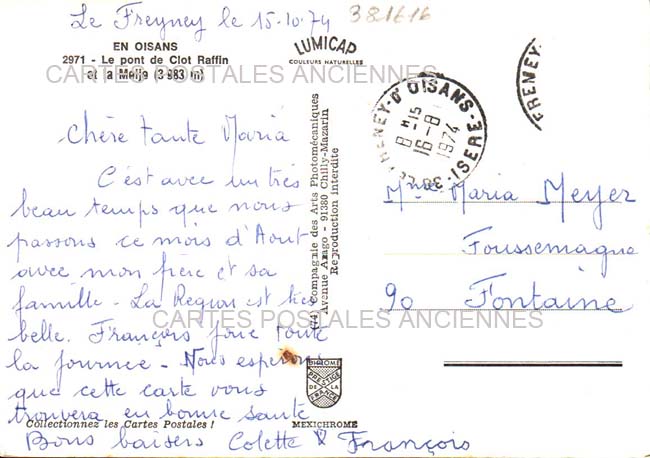 Le Freyney le 15.10.74
381616
EN OISANS
2971 - Le pont de Clot Raffin
et la Meije (3 983 m)
LUMICAP
COULEURS NATURELLES
CARTES POSTALES ANCIENNES
Chère tante Maria
C'est avec un très
beau temps que nous
passons ce mois d'Aout
avec mon frère et sa
famille - La Region est très
belle. François joue toute
la journee - Nous esperons
que cette carte vous
trouvera en bonne sante
Bons baisers Colette & François
Collectionnez les Cartes Postales !
(74) Compagnie des Arts Photomécaniques
Avenue Arago - 91380 Chilly-Mazarin
Reproduction interdite
PRESTIGE
DE LA
FRANCE
MEXICHROME
38 LE FRENEY-D'OISANS-ISERE
8 H 15
16-8
1974
FRENEY-
Mme Maria Meyer
Foussemagne
90 Fontaine
CARTES POSTALES ANCIENNES